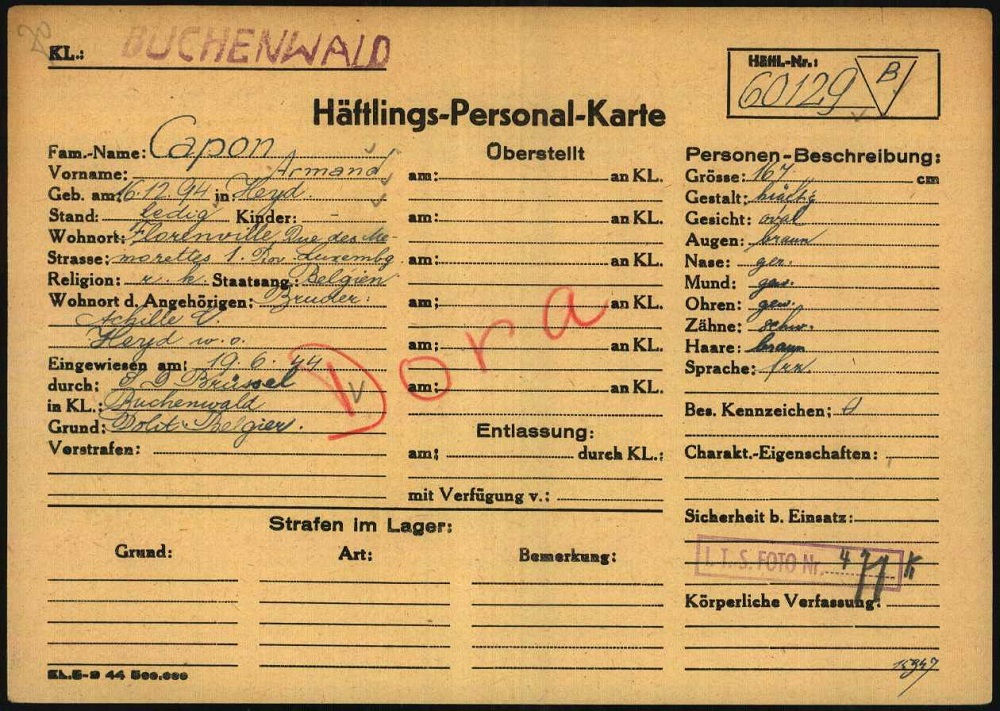 KL.: BUCHENWALD
Häftl.-Nr.:
60129 B
Häftlings-Personal-Karte
Fam.-Name: Capon
Vorname: Armand
Geb. am: 16.12.94 in Heyd.
Stand: ledig Kinder: -
Wohnort: Florenville, Rue des Me-
Strasse: morettes 1. Luxembg.
Religion: r. k. Staatsang.: Belgien
Wohnort d. Angehörigen: Bruder:
Achille C.
Heyd w.o.
Eingewiesen am: 19.6.44
durch: S D Brüssel
in KL.: Buchenwald
Grund: Polit. Belgier.
Vorstrafen:
Überstellt
am: an KL.
am: an KL.
am: an KL.
am: an KL.
am: an KL.
am: an KL.
Dora
Entlassung:
am: durch KL.:
mit Verfügung v.:
Personen-Beschreibung:
Grösse: 167 cm
Gestalt: kräftig
Gesicht: oval
Augen: braun
Nase: ger.
Mund: gew.
Ohren: gew.
Zähne: schw.
Haare: braun
Sprache: frz.
Bes. Kennzeichen:
Charakt.-Eigenschaften:
Sicherheit b. Einsatz:
I. T. S. FOTO Nr.
Körperliche Verfassung:
Strafen im Lager:
Grund: Art: Bemerkung:
KL.5-9 44 500.000